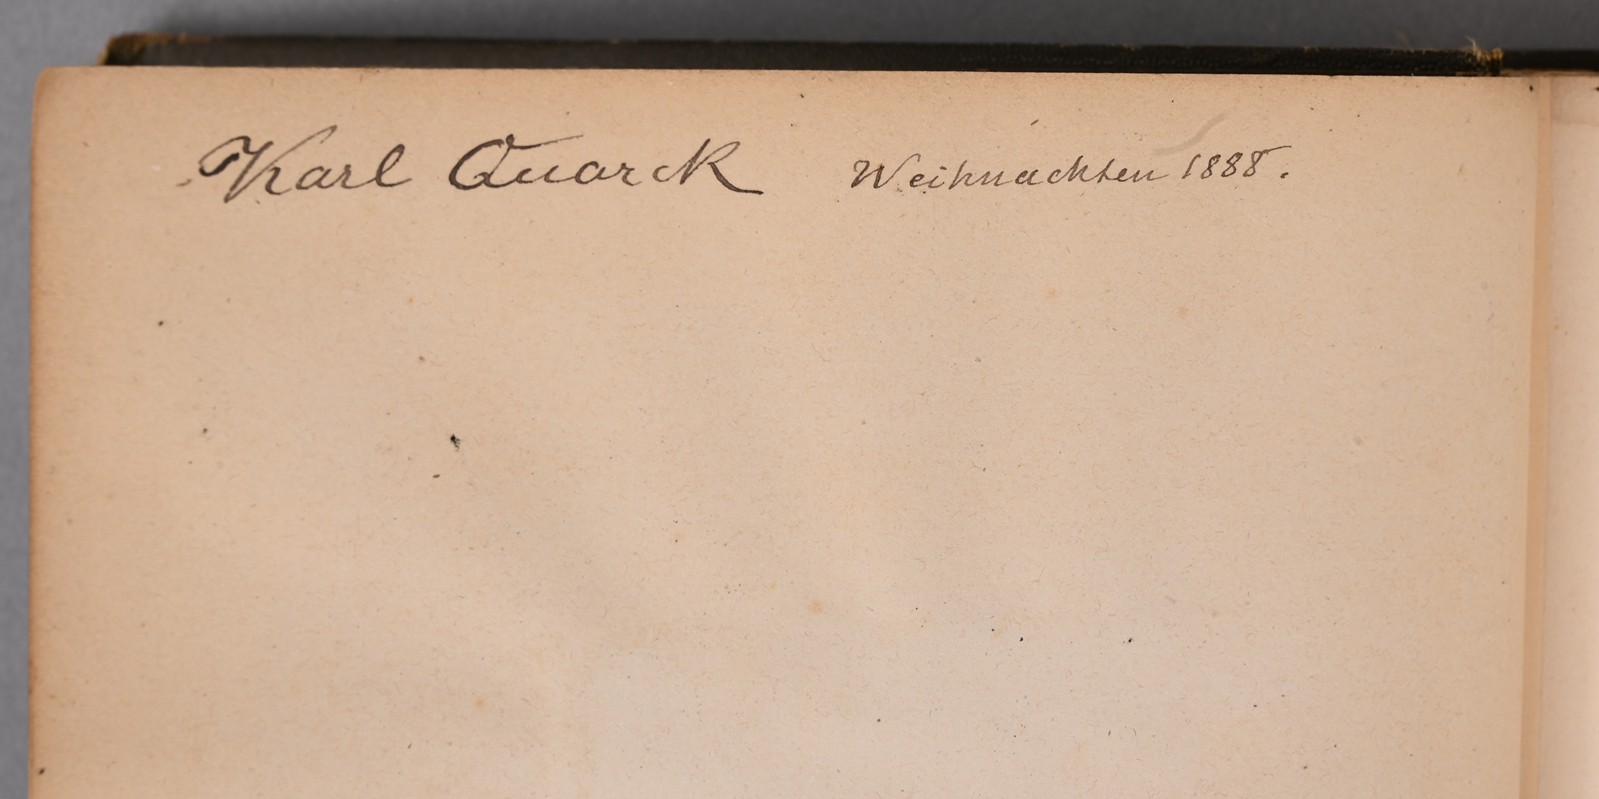 Karl Quarck Weihnachten 1888.